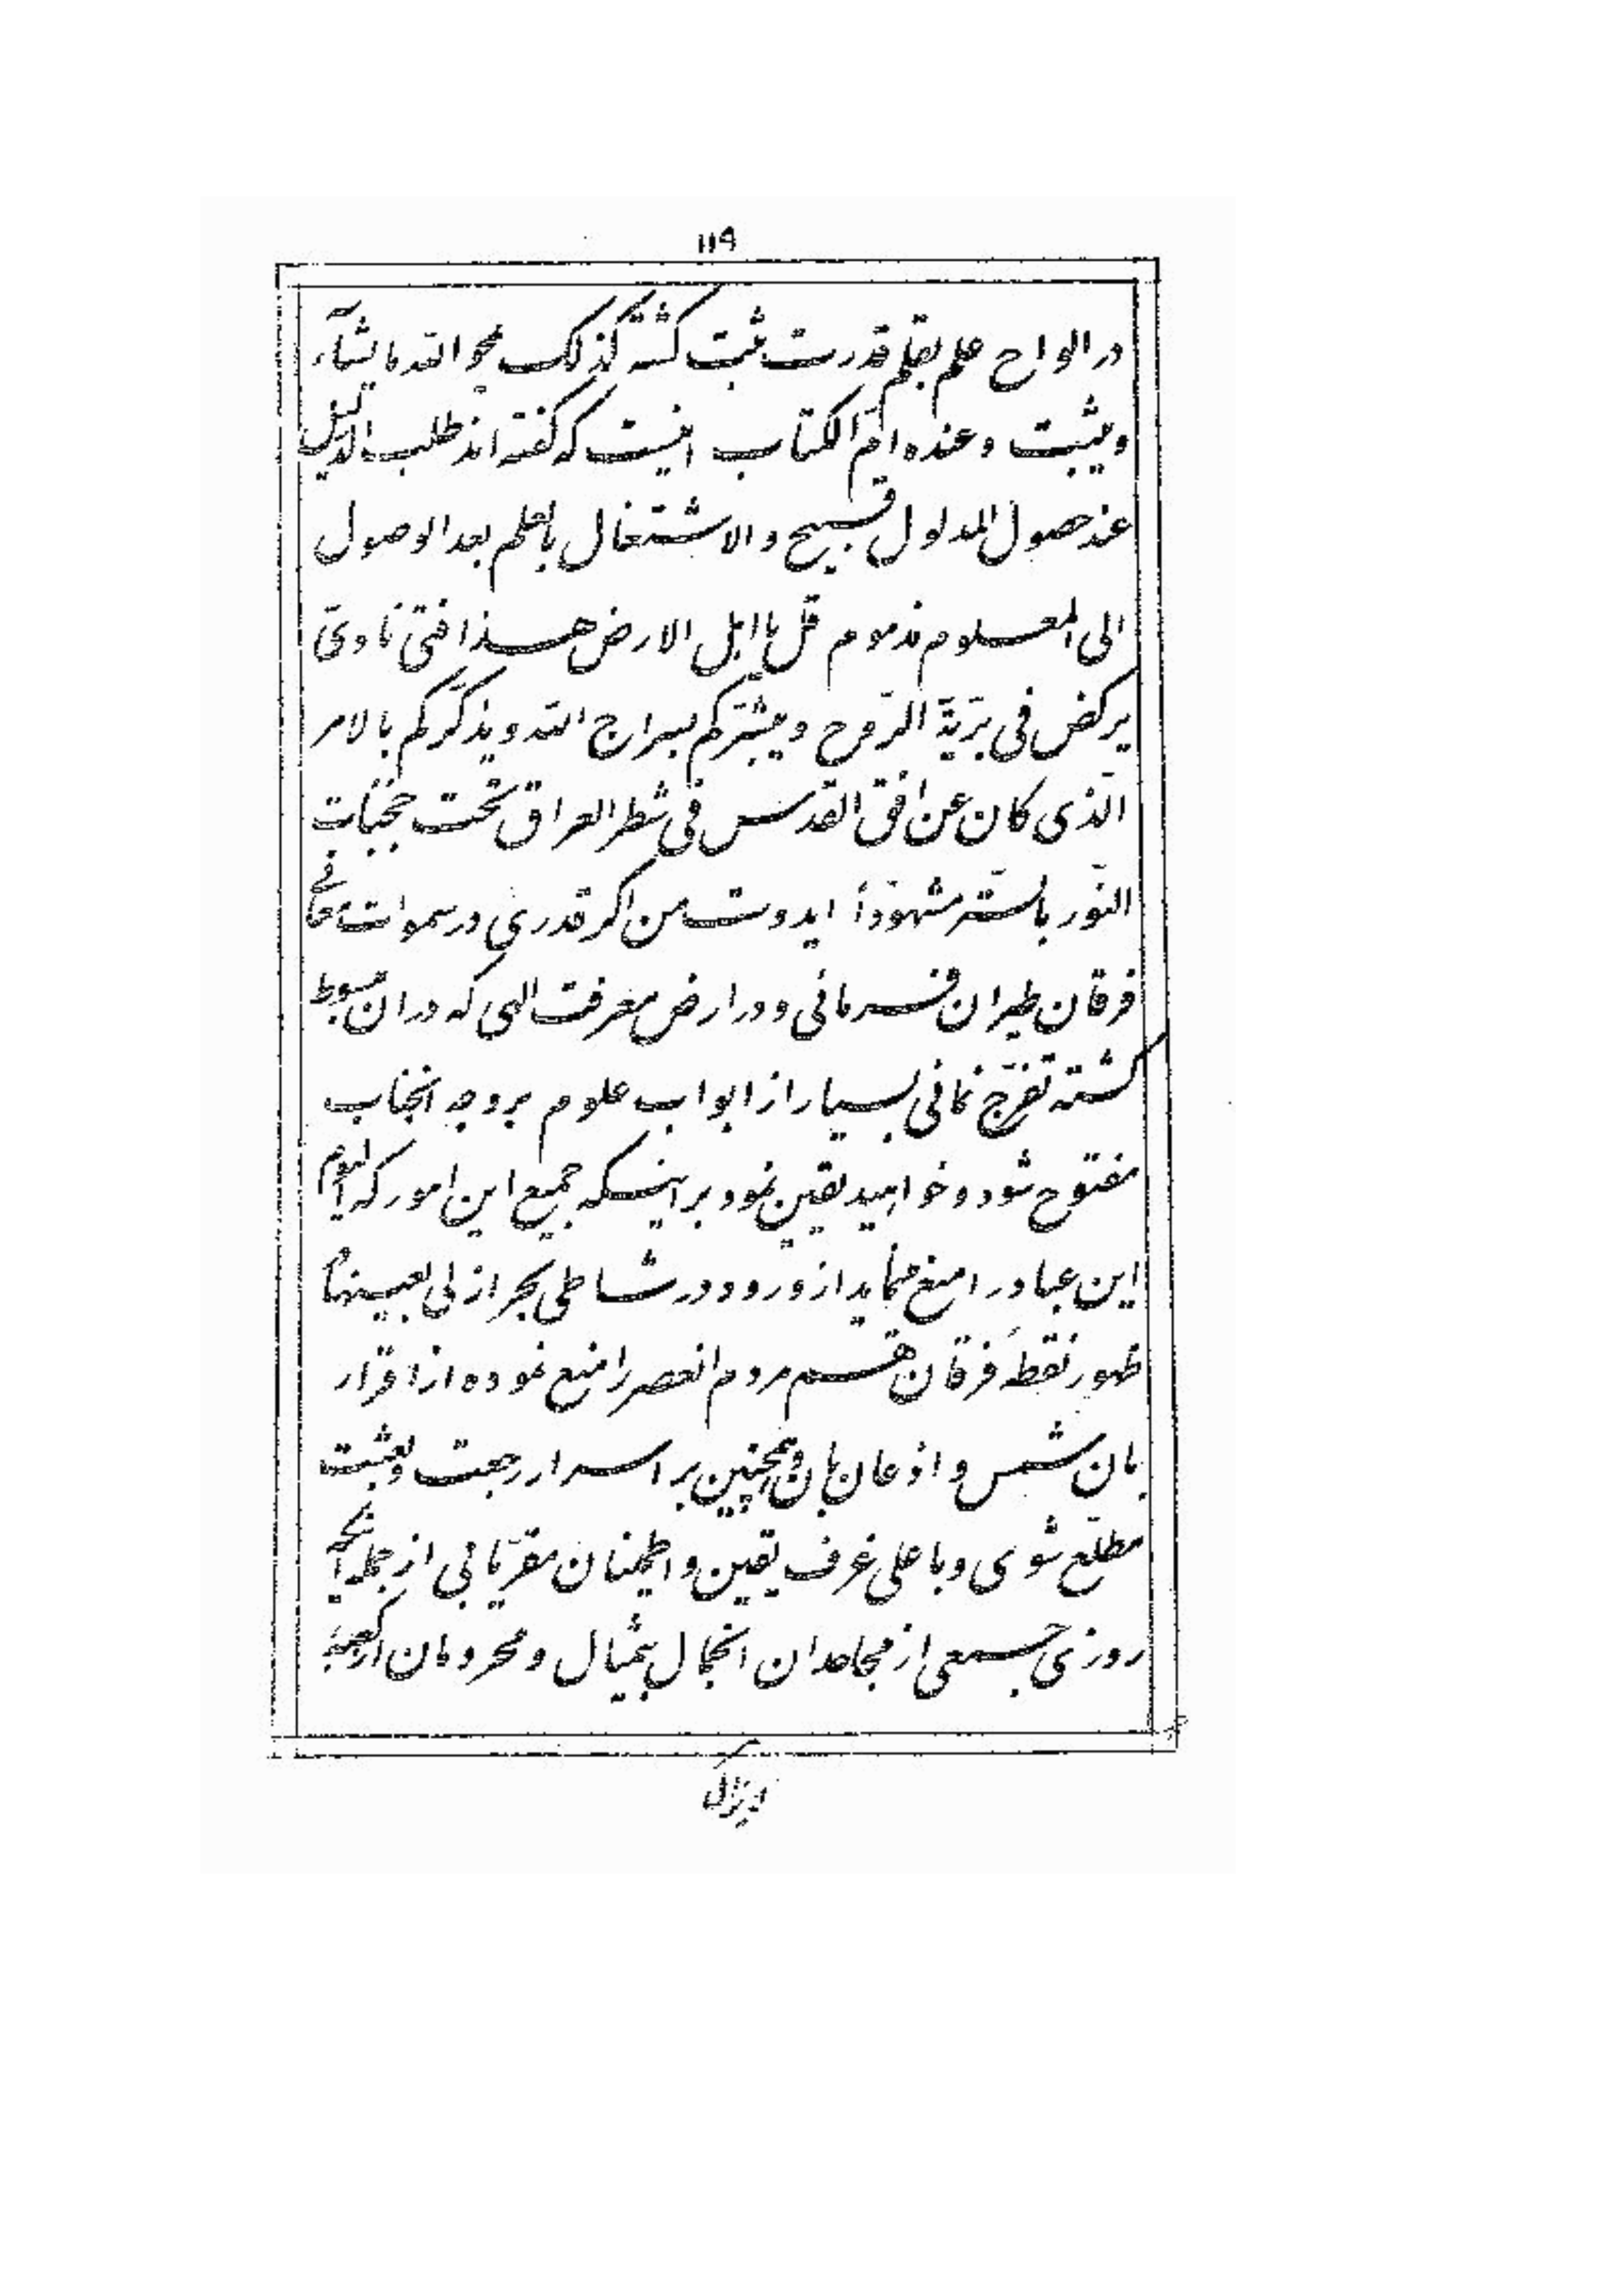 ۱۱۹
در الواح علم بقلم قدرت ثبت گشته كذلك يمحو الله ما يشآء
و يثبت و عنده امّ الكتاب اينست كه گفته‌اند طلب الدّليل
عند حصول المدلول قبيح و الاشتغال بالعلم بعد الوصول
الى المعلوم مذموم قل يا اهل الارض هذا فتى ناريّ
يركض فى برّيّة الرّوح و يبشّركم بسراج الله و يذكّركم بالامر
الّذى كان عن افق القدس فى شطر العراق تحت حجبات
النّور بالسّتر مشهوداً ايدوست من اگر قدرى در سموات معانى
فرقان طيران فرمائى و در ارض معرفت الهى كه در ان مبسوط
گشته تفرّج نمائى بسيار از ابواب علوم بر وجه انجناب
مفتوح شود و خواهيد يقين نمود بر اينكه جميع اين امور كه اليوم
اين عباد را منع مينمايد از ورود در شاطى بحر ازلى بعينها
ظهور نقطهٴ فرقان هم مردم انعصر را منع نموده از اقرار
بان شمس و اذعان بان و همچنين بر اسرار رجعت و بعثت
مطلّع شوى و باعلى غرف يقين و اطمينان مقرّ يابى از جمله آنكه
روزى جمعى از مجاحدان انجمال بيمثال و محرومان از كعبهٴ
لا يزال